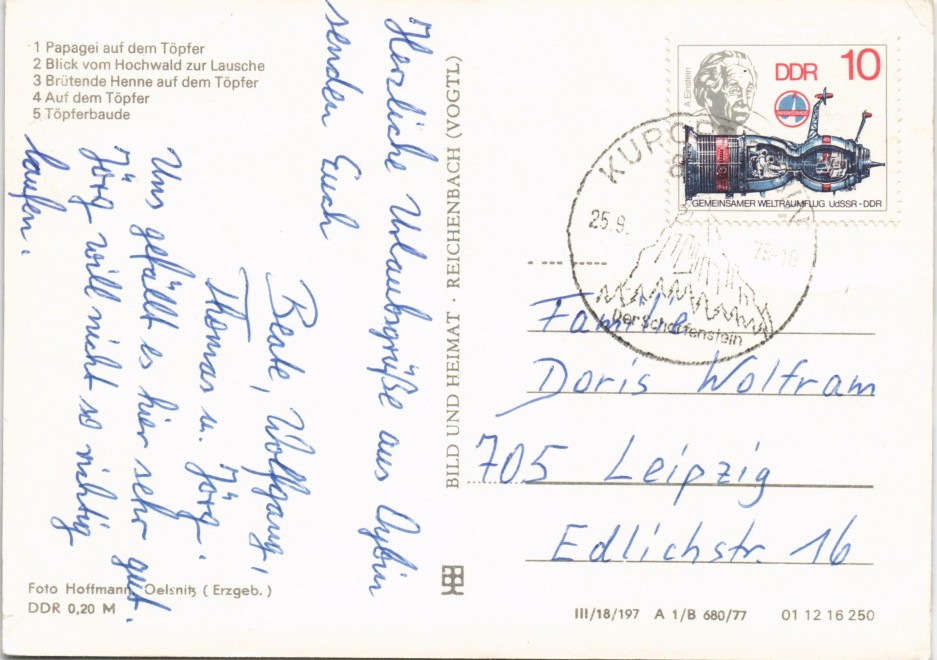 1 Papagei auf dem Töpfer
2 Blick vom Hochwald zur Lausche
3 Brütende Henne auf dem Töpfer
4 Auf dem Töpfer
5 Töpferbaude
Herzliche Urlaubsgrüße aus Oybin
senden Euch
Beate, Wolfgang,
Thomas u. Jörg.
Uns gefällt es hier sehr gut.
Jörg will nicht so richtig
laufen.
Foto Hoffmann, Oelsnitz (Erzgeb.)
DDR 0,20 M
BILD UND HEIMAT · REICHENBACH (VOGTL)
A. Einstein
DDR 10
GEMEINSAMER WELTRAUMFLUG UdSSR-DDR
KURORT
25.9.
Der Scharfenstein
Familie
Doris Wolfram
705 Leipzig
Edlichstr. 16
III/18/197 A 1/B 680/77 01 12 16 250